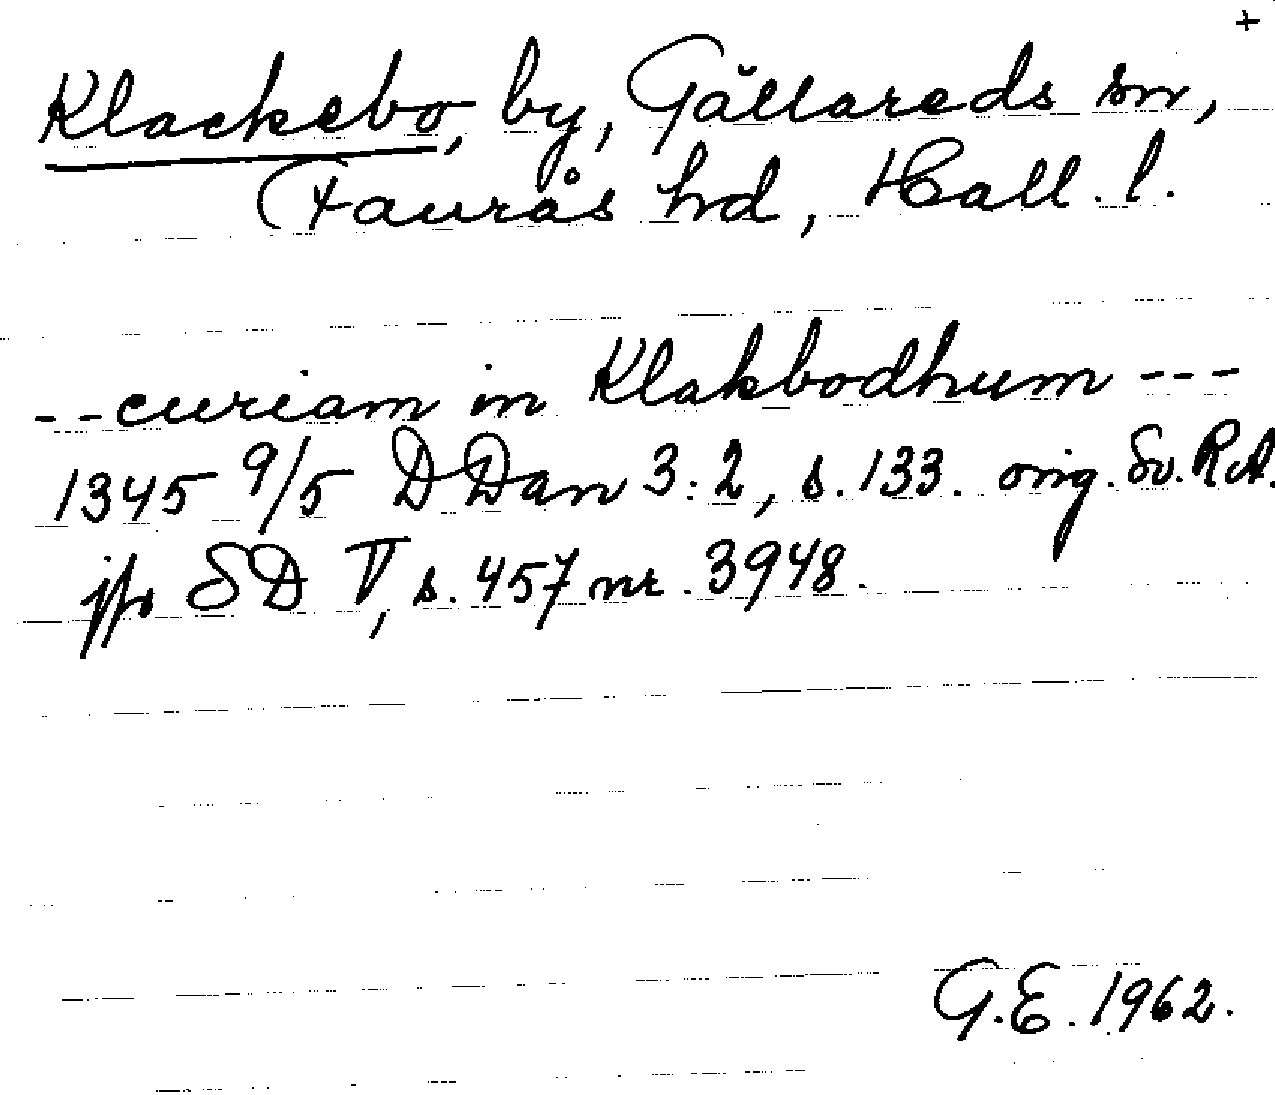 +
Klackebo, by, Gällareds sn,
Faurås hd, Hall. l.
--curiam in Klakbodhum ---
1345 9/5 DDan 3:2, s. 133. orig. Sv. RA.
jfr SD V, s. 457 nr. 3948.
G.E. 1962.